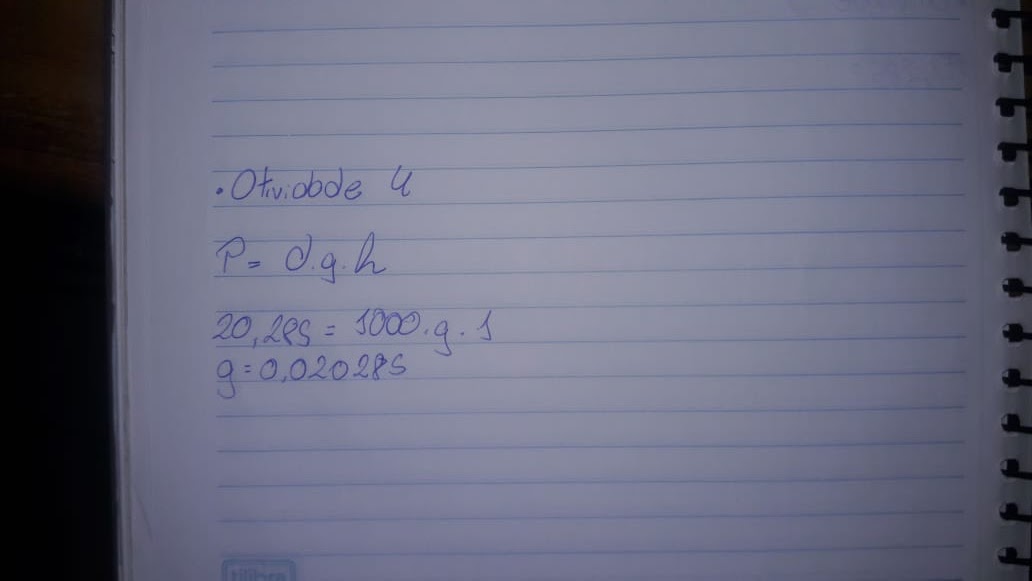 • Atividade 4
P = d.g.h
20,285 = 1000.g.1
g = 0,020285
tilibra